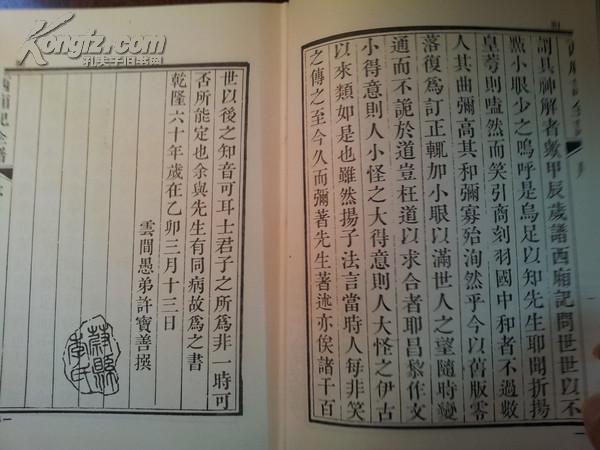 謂具神解者歟甲辰歲諸西廂記問世世以不
點小眼少之嗚呼是烏足以知先生耶聞折揚
皇荂則嗑然而笑引商刻羽國中和者不過數
人其曲彌高其和彌寡殆洵然乎今以舊版零
落復爲訂正輒加小眼以滿世人之望隨時變
通而不詭於道豈枉道以求合者耶昌黎作文
小得意則人小怪之大得意則人大怪之伊古
以來類如是也雖然揚子法言當時人每非笑
之傳之至今久而彌著先生著述亦俟諸千百
世以後之知音可耳士君子之所爲非一時可
否所能定也余與先生有同病故爲之書
乾隆六十年歲在乙卯三月十三日
雲間愚弟許寶善撰
西廂記全譜
Kongfz.com
孔夫子旧书网